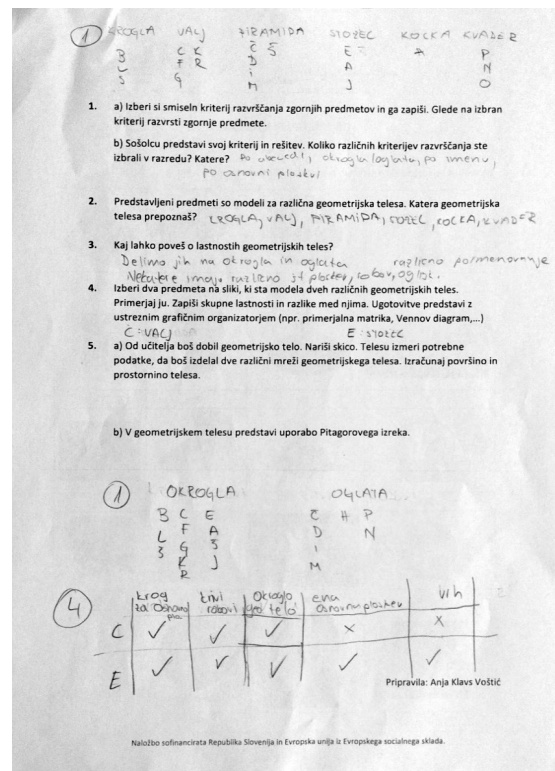 1 KROGLA VALJ PIRAMIDA STOŽEC KOCKA KVADER
B C K Č Š E H P
L F R D A N
G I J O
M
1. a) Izberi si smiseln kriterij razvrščanja zgornjih predmetov in ga zapiši. Glede na izbran
kriterij razvrsti zgornje predmete.
b) Sošolcu predstavi svoj kriterij in rešitev. Koliko različnih kriterijev razvrščanja ste
izbrali v razredu? Katere? Po abecedi, okrogla/oglata, po imenu,
po osnovni ploskvi
2. Predstavljeni predmeti so modeli za različna geometrijska telesa. Katera geometrijska
telesa prepoznaš? KROGLA, VALJ, PIRAMIDA, STOŽEC, KOCKA, KVADER
3. Kaj lahko poveš o lastnostih geometrijskih teles?
Delimo jih na okrogla in oglata različno poimenovanje
Nekatere imajo različno št ploskev, robov, oglišč.
4. Izberi dva predmeta na sliki, ki sta modela dveh različnih geometrijskih teles.
Primerjaj ju. Zapiši skupne lastnosti in razlike med njima. Ugotovitve predstavi z
ustreznim grafičnim organizatorjem (npr. primerjalna matrika, Vennov diagram,...)
C: VALJ E: STOŽEC
5. a) Od učitelja boš dobil geometrijsko telo. Nariši skico. Telesu izmeri potrebne
podatke, da boš izdelal dve različni mreži geometrijskega telesa. Izračunaj površino in
prostornino telesa.
b) V geometrijskem telesu predstavi uporabo Pitagorovega izreka.
1 OKROGLA OGLATA
B C E Č H P
L F A D N
G J I
K M
R
4 krog krivi okroglo ena vrh
za osnovno robovi geo telo osnovna ploskev
C ✓ ✓ ✓ × ×
E ✓ ✓ ✓ ✓ ✓
Pripravila: Anja Klavs Voštić
Naložbo sofinancirata Republika Slovenija in Evropska unija iz Evropskega socialnega sklada.